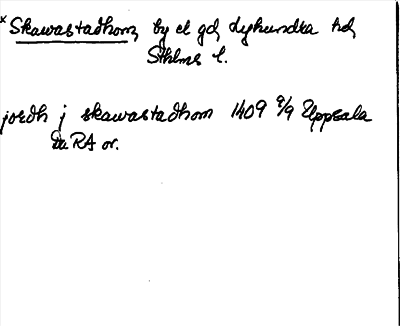 *Skawastadhom, by el gd, dyhundra hd,
Sthlms l.
jordh j skawastadhom 1409 9/9 Uppsala
RA or.